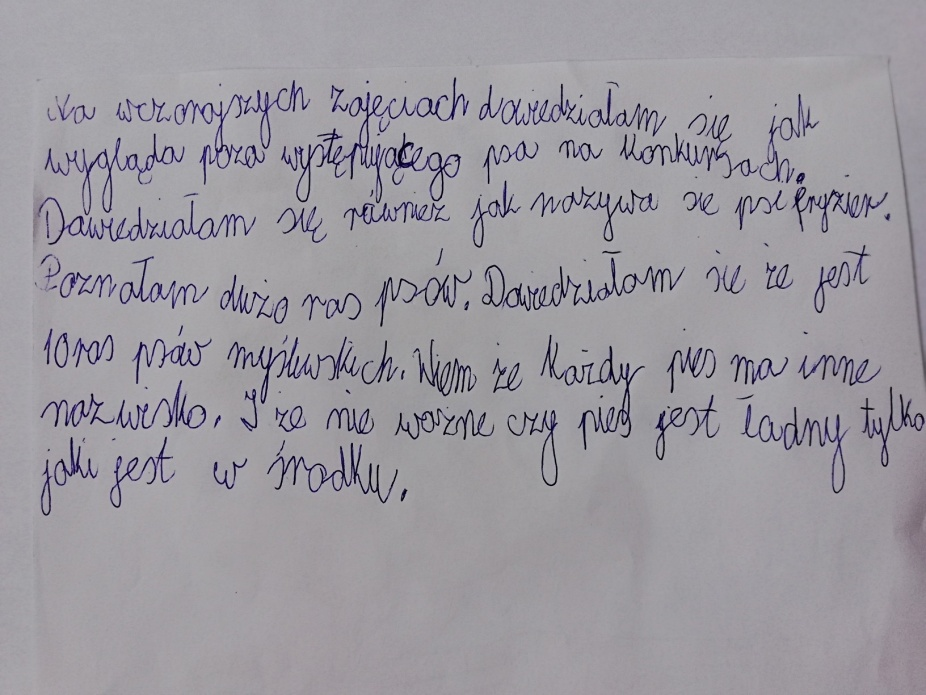 Na wczorajszych zajęciach dowiedziałam się jak
wygląda poza występującego psa na konkursach.
Dowiedziałam się również jak nazywa się psi fryzjer.
Poznałam dużo ras psów. Dowiedziałam się że jest
10 ras psów myśliwskich. Wiem że każdy pies ma inne
nazwisko. I że nie ważne czy pies jest ładny tylko
jaki jest w środku.